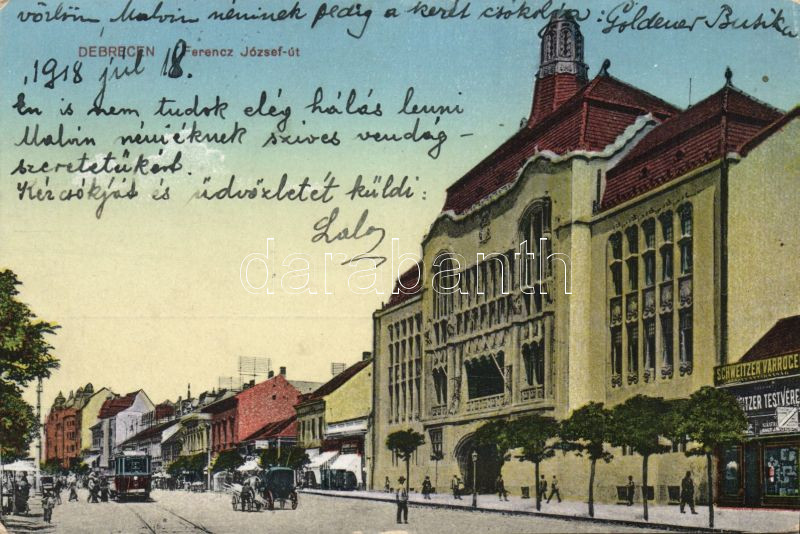 vözlöm, Malvin néninek pedig a kezét csókolja: Goldener Busika
DEBRECEN Ferencz József-út
1918 jul 18.
Én is nem tudok elég hálás lenni
Malvin nénjéknek szives vendég-
szeretetükért.
Kézcsókját és üdvözletét küldi:
Laló
darabanth
SCHWEITZER VARRÓGÉ
TZER TESTVÉRE